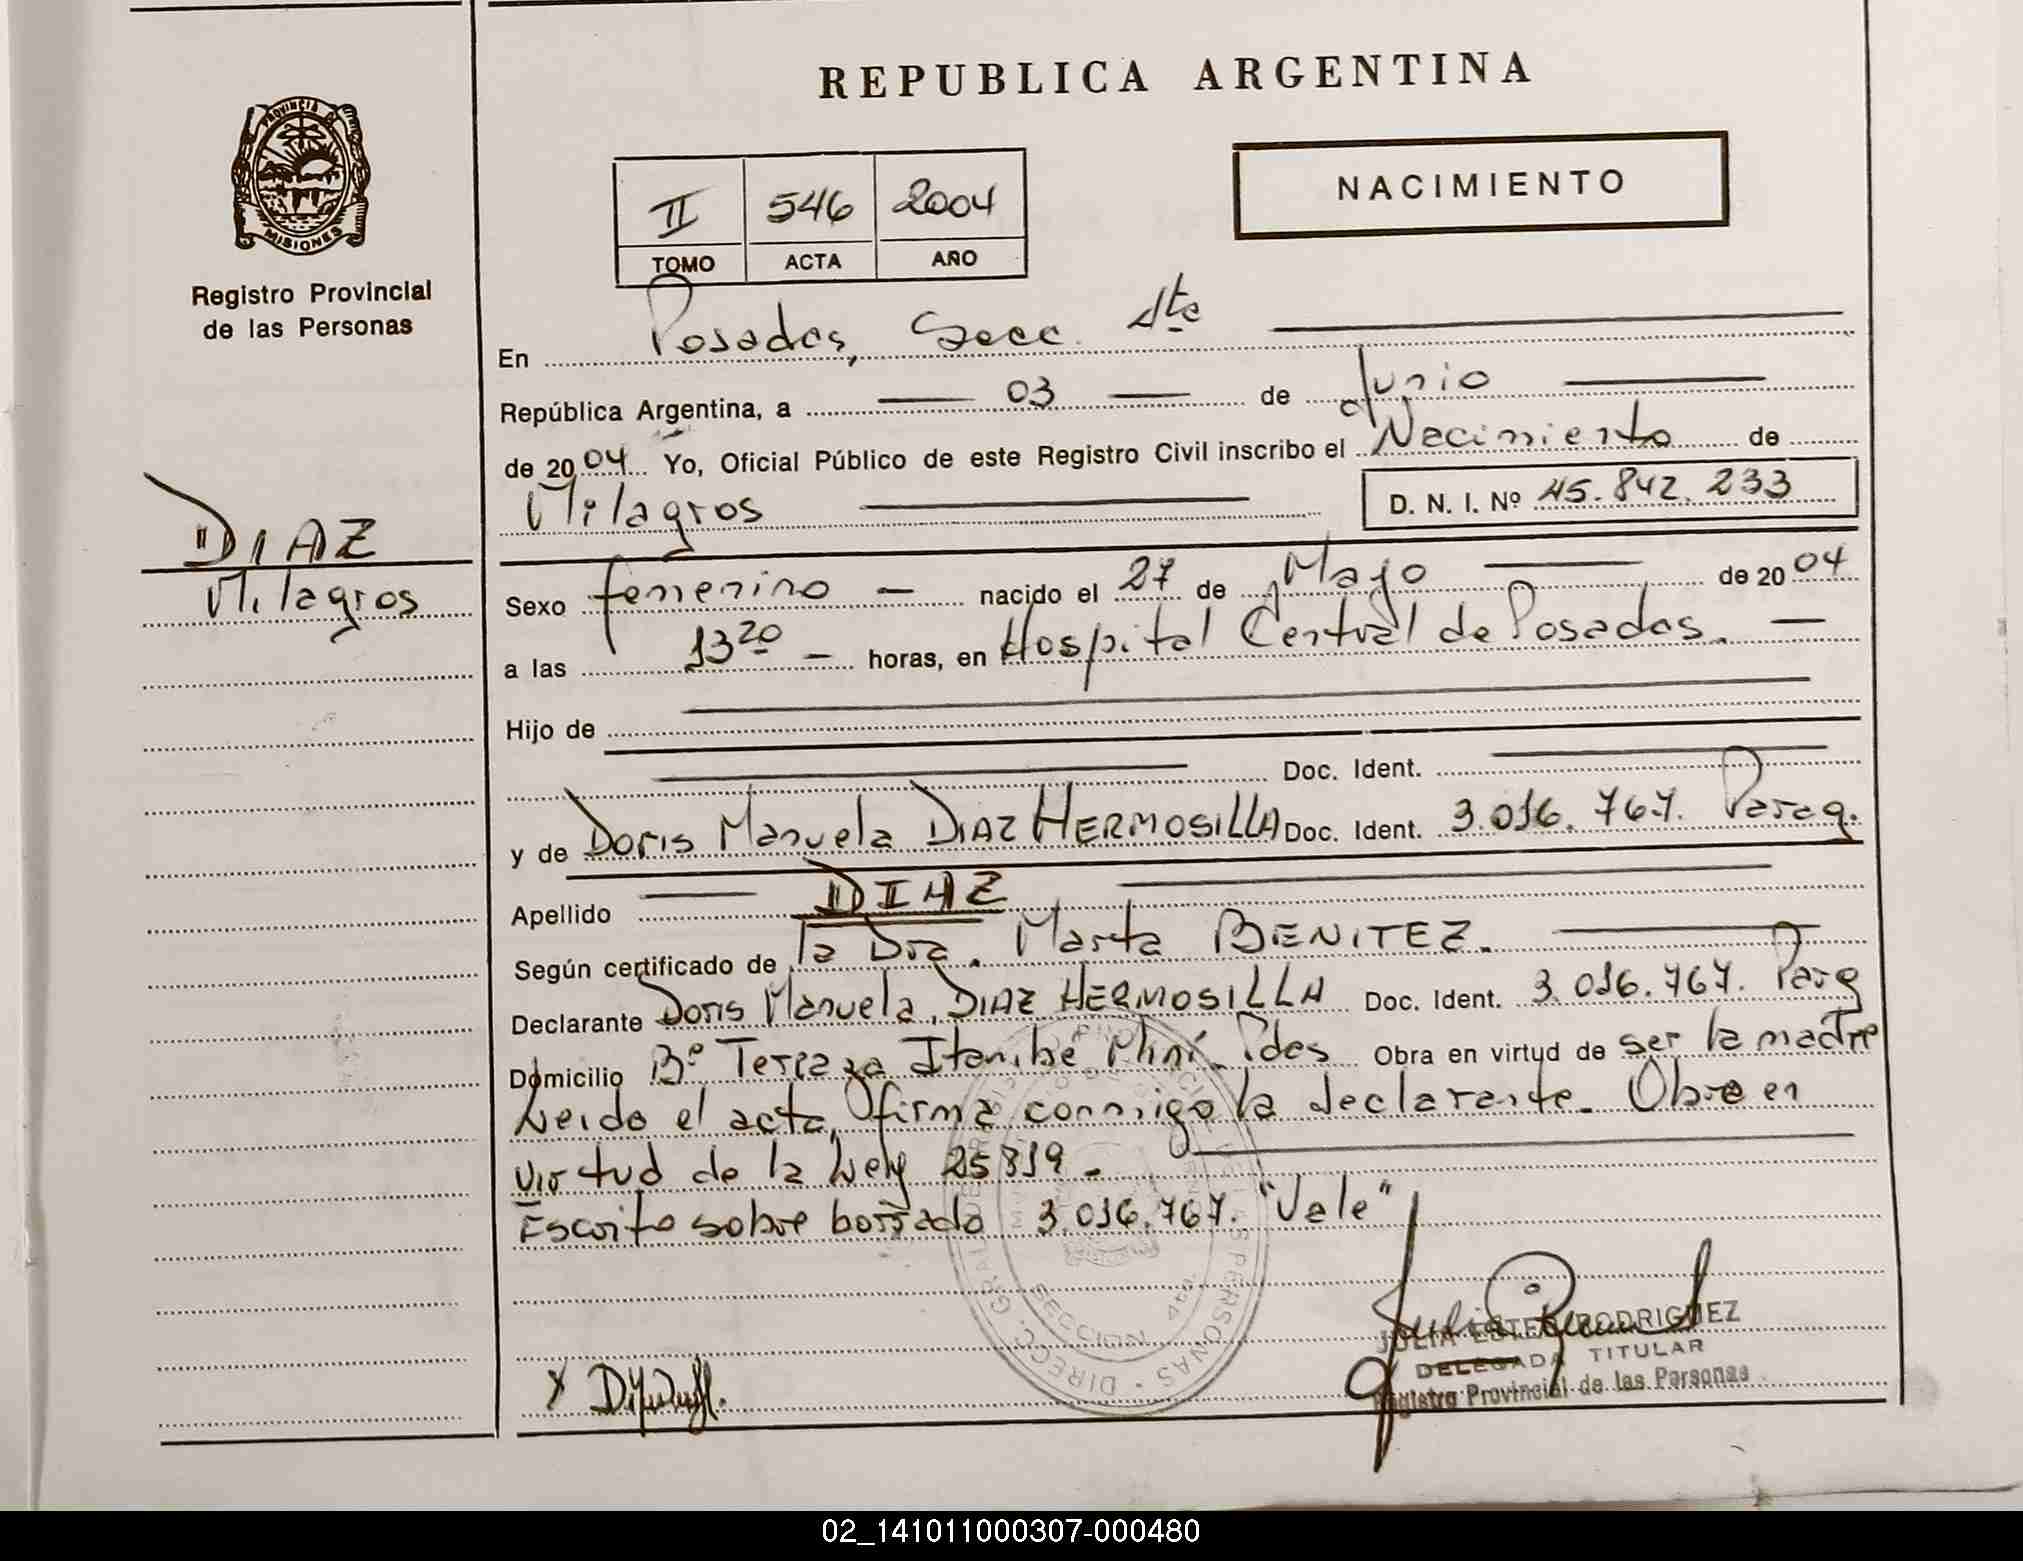 REPUBLICA ARGENTINA
PROVINCIA DE
MISIONES
Registro Provincial
de las Personas
NACIMIENTO
II 546 2004
TOMO ACTA AÑO
DIAZ
Milagros
En Posadas, Secc. 4ta
República Argentina, a 03 de Junio
de 2004 Yo, Oficial Público de este Registro Civil inscribo el Nacimiento de
Milagros D. N. I. Nº 45.842.233
Sexo femenino nacido el 27 de Mayo de 2004
a las 13 20 horas, en Hospital Central de Posadas.
Hijo de
Doc. Ident.
y de Doris Manuela DIAZ HERMOSILLA Doc. Ident. 3.016.767. Parag.
Apellido DIAZ
Según certificado de la Dra. Marta BENITEZ.
Declarante Doris Manuela, DIAZ HERMOSILLA Doc. Ident. 3.016.767. Parg
Domicilio Bº Terraza Itambé Miní Pdas Obra en virtud de ser la madre
Leido el acta, firma conmigo la declarante. Obra en
virtud de la Ley 25819.
Escrito sobre borrado 3.016.767. "Vale"
SECCION 4ta.
JULIA ESTER RODRIGUEZ
DELEGADA TITULAR
Registro Provincial de las Personas
X
02_141011000307-000480